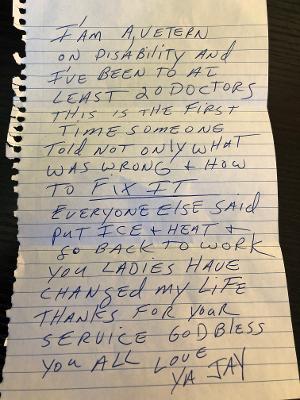 I'AM A, VETERN
ON DISABILITY AND
I'VE BEEN TO AT
LEAST 20 DOCTORS
THIS IS THE FIRST
TIME SOMEONE
TOLD NOT ONLY WHAT
WAS WRONG + HOW
TO FIX IT
EVERYONE ELSE SAID
PUT ICE + HEAT +
GO BACK TO WORK
YOU LADIES HAVE
CHANGED MY LIFE
THANKS FOR YOUR
SERVICE GOD BLESS
YOU ALL LOVE
YA JAY